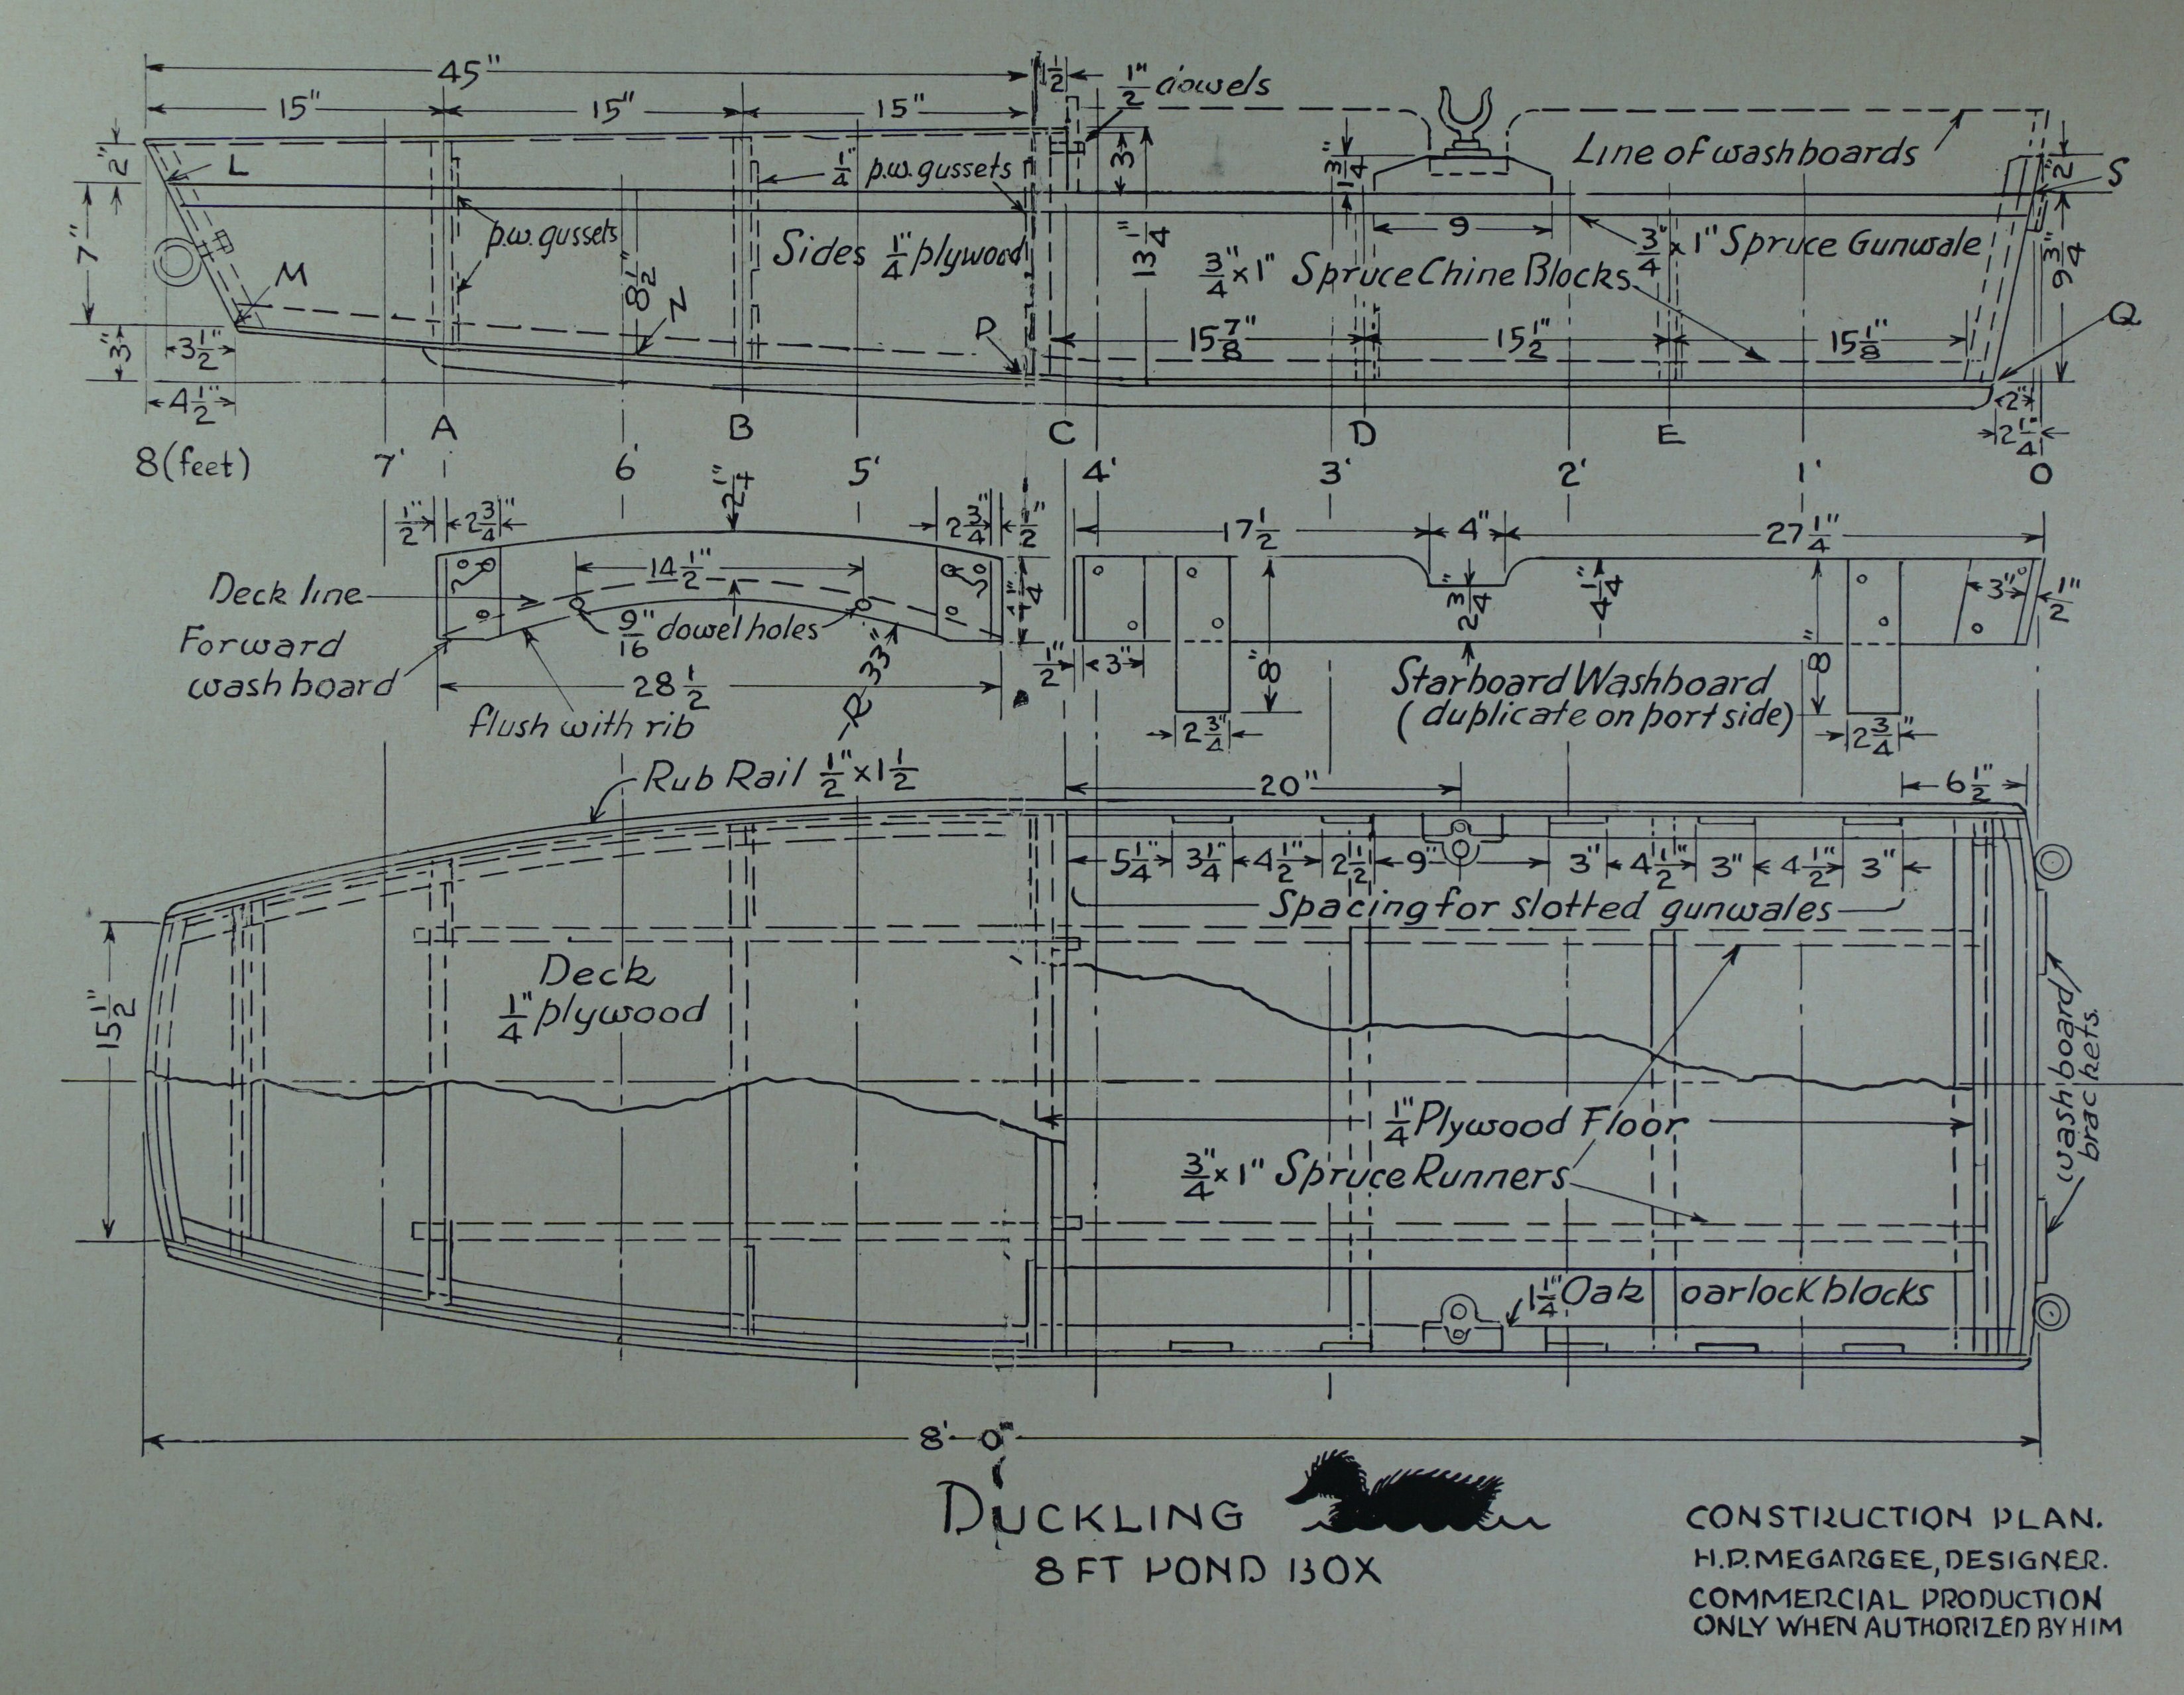 45"
1 1/2
1/2" dowels
15" 15" 15"
2"
L
1/4" p.w. gussets
3"
1 3/4"
Line of washboards
2"
S
7"
p.w. gussets
Sides 1/4" plywood
13 1/4"
9
3/4" x 1" Spruce Gunwale
9 3/4"
3/4" x 1" Spruce Chine Blocks
M
8 1/2"
N
P
Q
3"
3 1/2"
15 7/8" 15 1/2" 15 1/8"
4 1/2"
2"
2 1/4"
A B C D E
8 (feet) 7' 6' 5' 4' 3' 2' 1' 0
1/2" 2 3/4" 2 1/4" 2 3/4" 1/2"
17 1/2 4" 27 1/4"
14 1/2"
Deck line
9/16" dowel holes
4 1/4"
2 3/4"
4 1/4"
3" 1/2"
Forward
washboard
28 1/2
R 33"
1/2" 3"
8"
8"
flush with rib
Starboard Washboard
(duplicate on port side)
2 3/4" 2 3/4"
Rub Rail 1/2" x 1 1/2
20"
6 1/2"
5 1/4" 3 1/4" 4 1/2" 2 1/2" 9" 3" 4 1/2" 3" 4 1/2" 3"
Spacing for slotted gunwales
Deck
1/4" plywood
15 1/2"
washboard
brackets.
1/4" Plywood Floor
3/4" x 1" Spruce Runners
1 1/4" Oak oarlock blocks
8'-0"
DUCKLING
8 FT POND BOX
CONSTRUCTION PLAN.
H.P. MEGARGEE, DESIGNER.
COMMERCIAL PRODUCTION
ONLY WHEN AUTHORIZED BY HIM